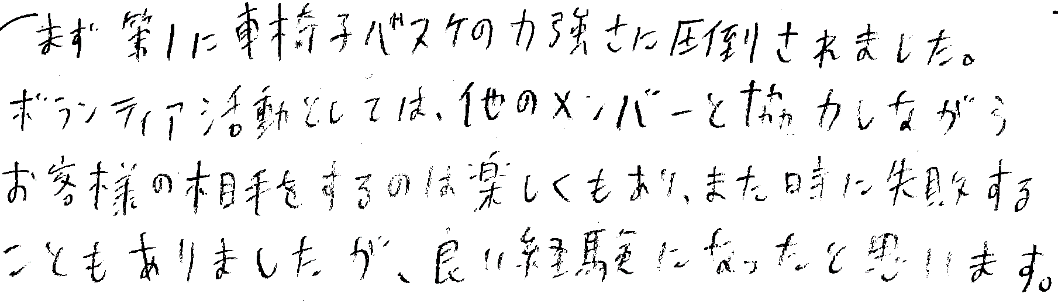 まず第1に車椅子バスケの力強さに圧倒されました。
ボランティア活動としては、他のメンバーと協力しながら
お客様の相手をするのは楽しくもあり、また時に失敗する
こともありましたが、良い経験になったと思います。